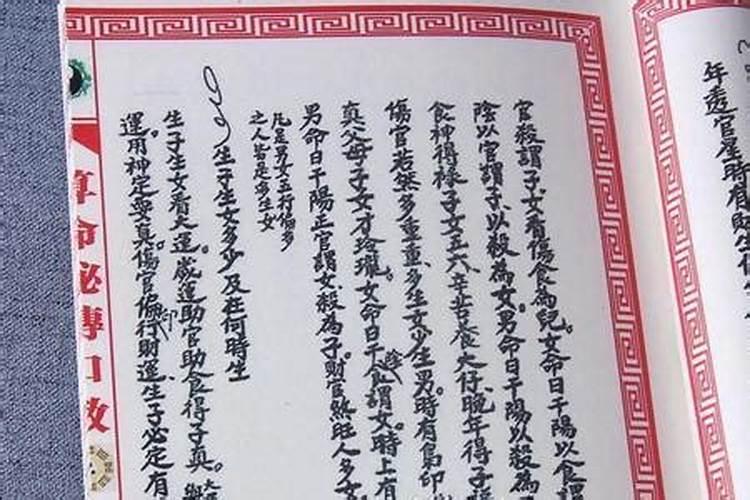 年透官星時有財
官殺謂子女看傷食為兒。女命日干陽以食謂
陰以官謂子、以殺為女。男命日干陽以殺為
食神得祿子女五六、辛苦養大仔、晚年得子
傷官若然多重重、多生女少生男。時有梟印
真父母子女才玲瓏。女命日干陰食謂女。時上有
男命日干陽正官謂女、殺為子。財官煞旺人多女
凡是男女五行偏多
之人皆是多生女
生子生女多少及在何時生
生子生女看大運。歲運助官助食得子真。
運用神定要真。傷官偏印行財運、生子必定有
算命秘傳口訣